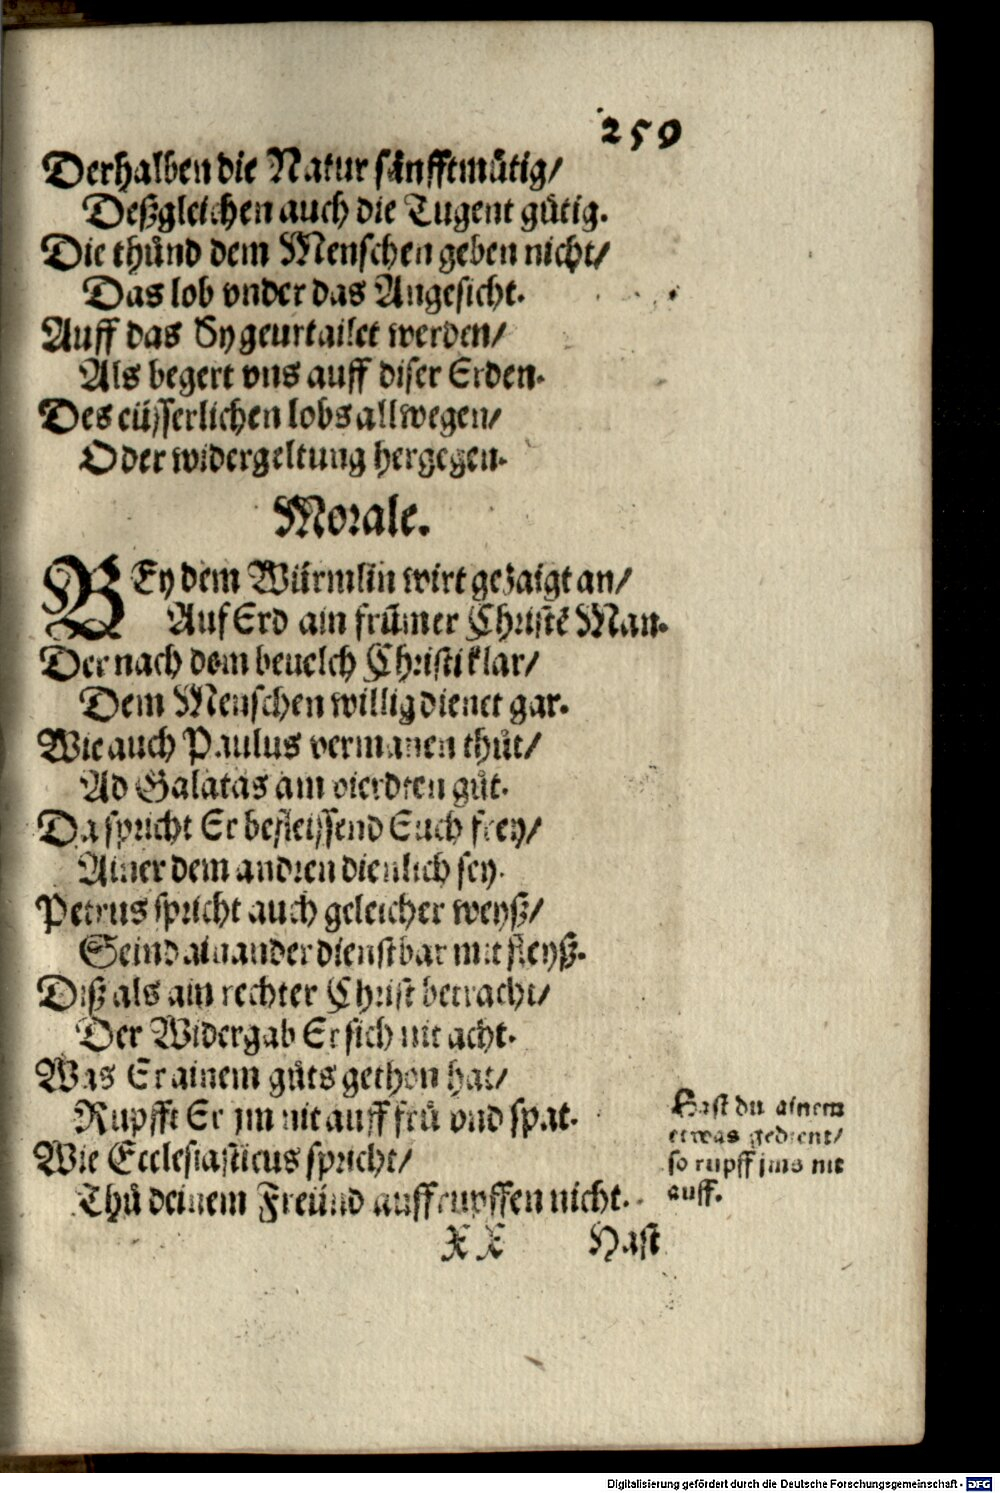 259
Derhalben die Natur sänfftmůtig/
Deßgleichen auch die Tugent gůtig.
Die thůnd dem Menschen geben nicht/
Das lob vnder das Angesicht.
Auff das Sy geurtailet werden/
Als begert vns auff diser Erden.
Des eüsserlichen lobs allwegen/
Oder widergeltung hergegen.
Morale.
BEy dem Würmlin wirt gezaigt an/
Auf Erd ain frũmer Christẽ Man.
Der nach dem beuelch Christi klar/
Dem Menschen willig dienet gar.
Wie auch Paulus vermanen thůt/
Ad Galatas am vierdten gůt.
Da spricht Er befleissend Euch frey/
Ainer dem andren dienlich sey.
Petrus spricht auch geleicher weyß/
Seind ainander dienstbar mit fleyß.
Diß als ain rechter Christ betracht/
Der Widergab Er sich nit acht.
Was Er ainem gůts gethon hat/
Rupfft Er jm nit auff frů vnd spat.
Wie Ecclesiasticus spricht/
Thů deinem Freünd auffrupffen nicht.
Hast du ainem
etwas gedient/
so rupff jms nit
auff.
XX Hast
Digitalisierung gefördert durch die Deutsche Forschungsgemeinschaft - DFG